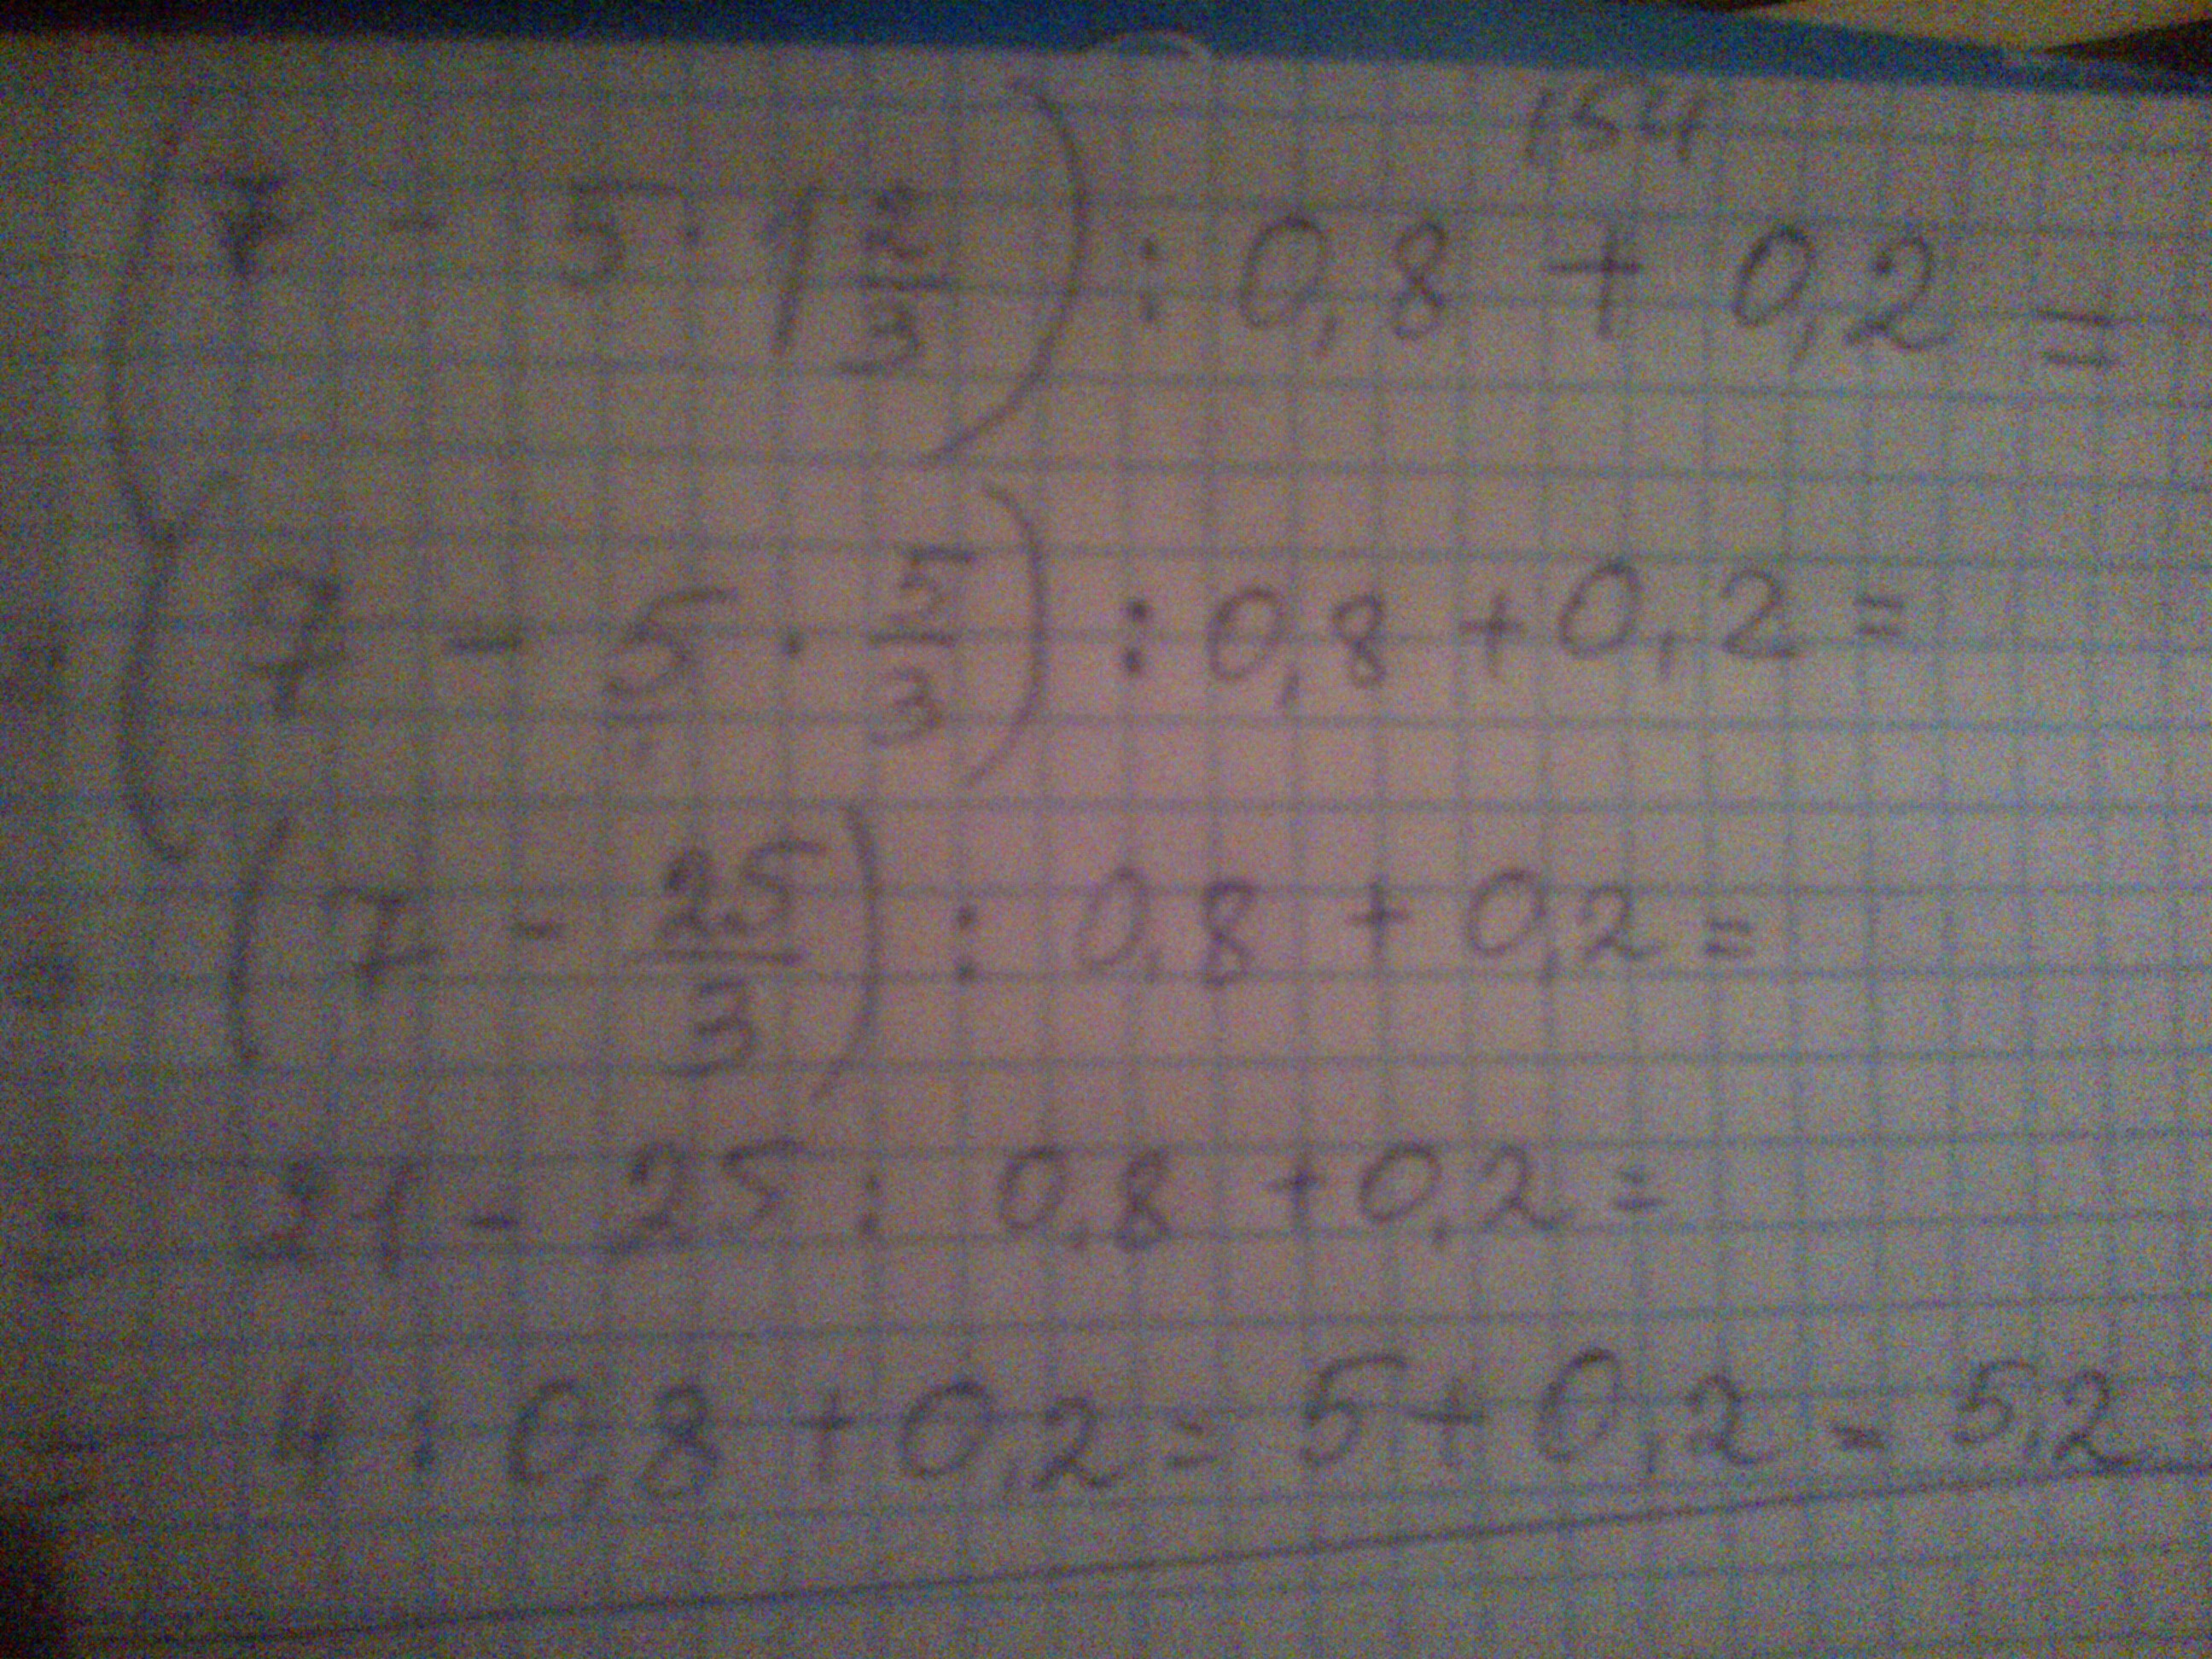 154
(7 - 5 · 1 2/3) : 0,8 + 0,2 =
(7 - 5 · 5/3) : 0,8 + 0,2 =
(7 - 25/3) : 0,8 + 0,2 =
21 - 25 : 0,8 + 0,2 =
4 : 0,8 + 0,2 = 5 + 0,2 = 5,2